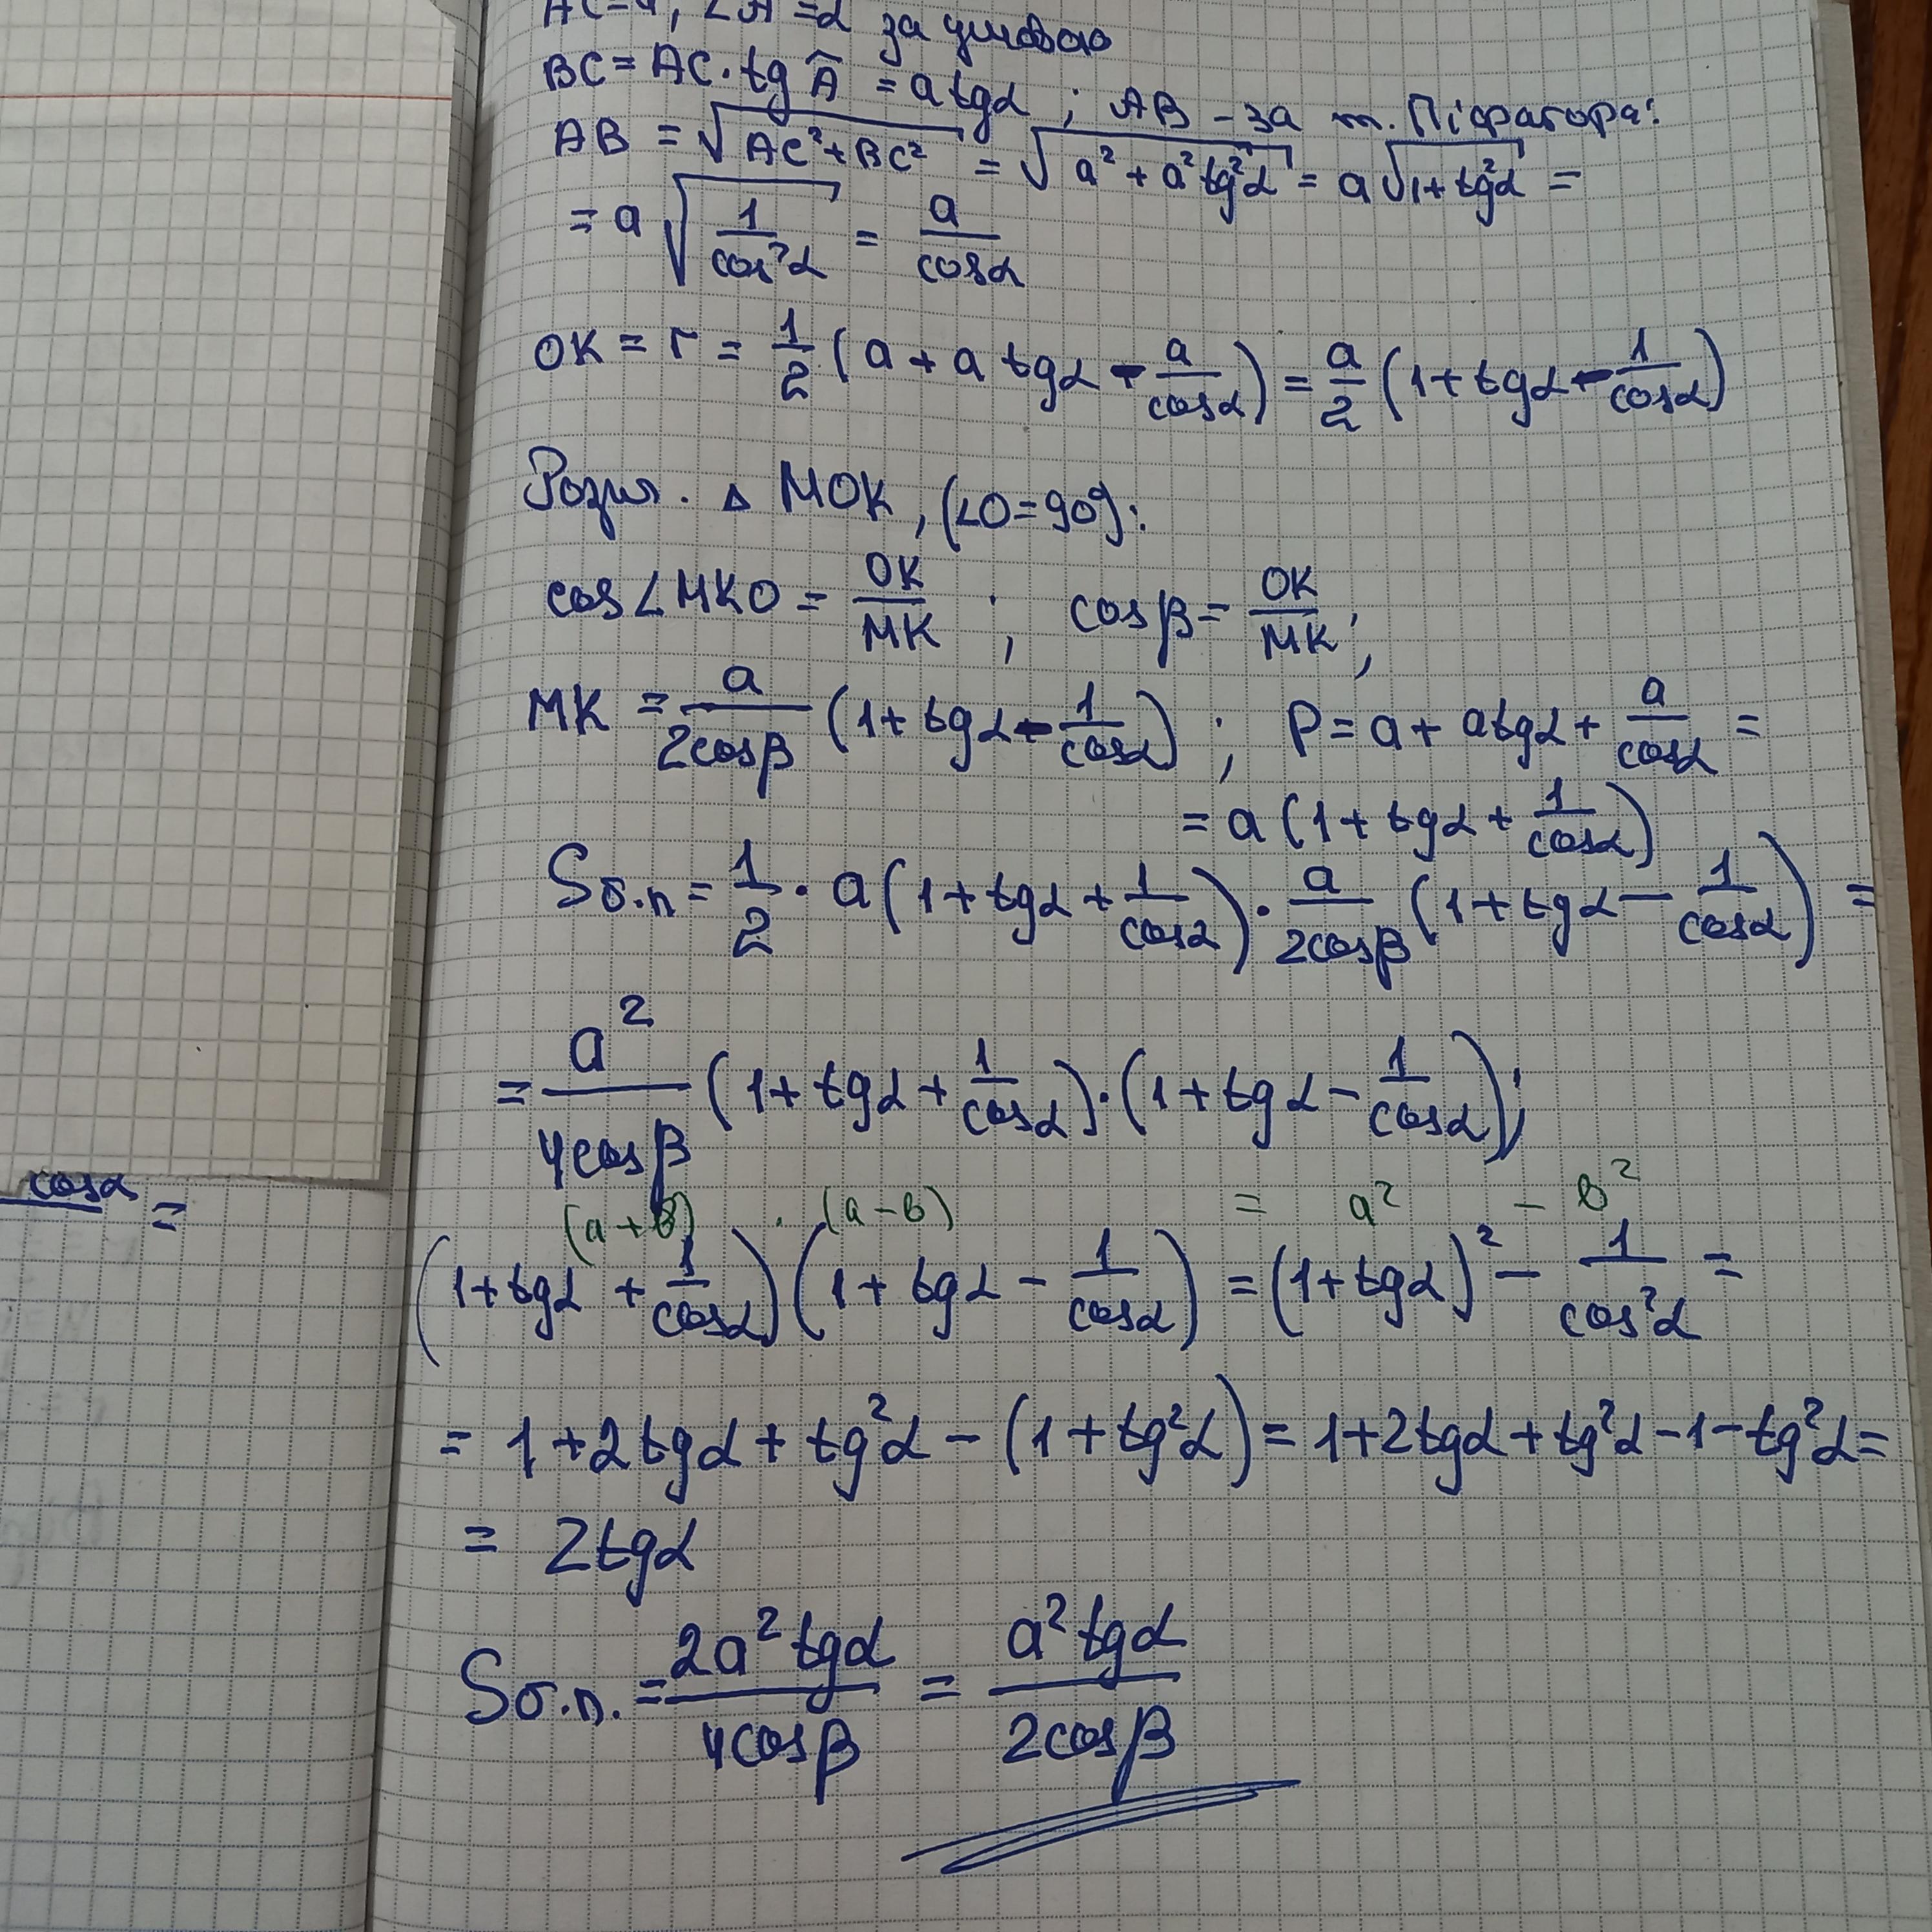 AC=a, ∠A=α за умовою
BC = AC·tg Â = a tgα ; AB – за т. Піфагора:
AB = √(AC²+BC²) = √(a²+a²tg²α) = a√(1+tg²α) =
= a√(1/cos²α) = a/cosα
OK = r = 1/2 (a + a tgα - a/cosα) = a/2 (1+tgα - 1/cosα)
Розгл. △ MOK, (∠O=90°):
cos∠MKO = OK/MK ; cosβ = OK/MK ;
MK = a/2cosβ (1+tgα - 1/cosα) ; P = a + atgα + a/cosα =
= a(1+tgα + 1/cosα)
Sб.п = 1/2 · a(1+tgα + 1/cosα) · a/2cosβ (1+tgα - 1/cosα) =
= a²/4cosβ (1+tgα + 1/cosα)·(1+tgα - 1/cosα);
cosα =
(a+b) · (a-b) = a² - b²
(1+tgα + 1/cosα)(1+tgα - 1/cosα) = (1+tgα)² - 1/cos²α =
= 1+2tgα+tg²α - (1+tg²α) = 1+2tgα+tg²α-1-tg²α =
= 2tgα
Sб.п. = 2a²tgα/4cosβ = a²tgα/2cosβ